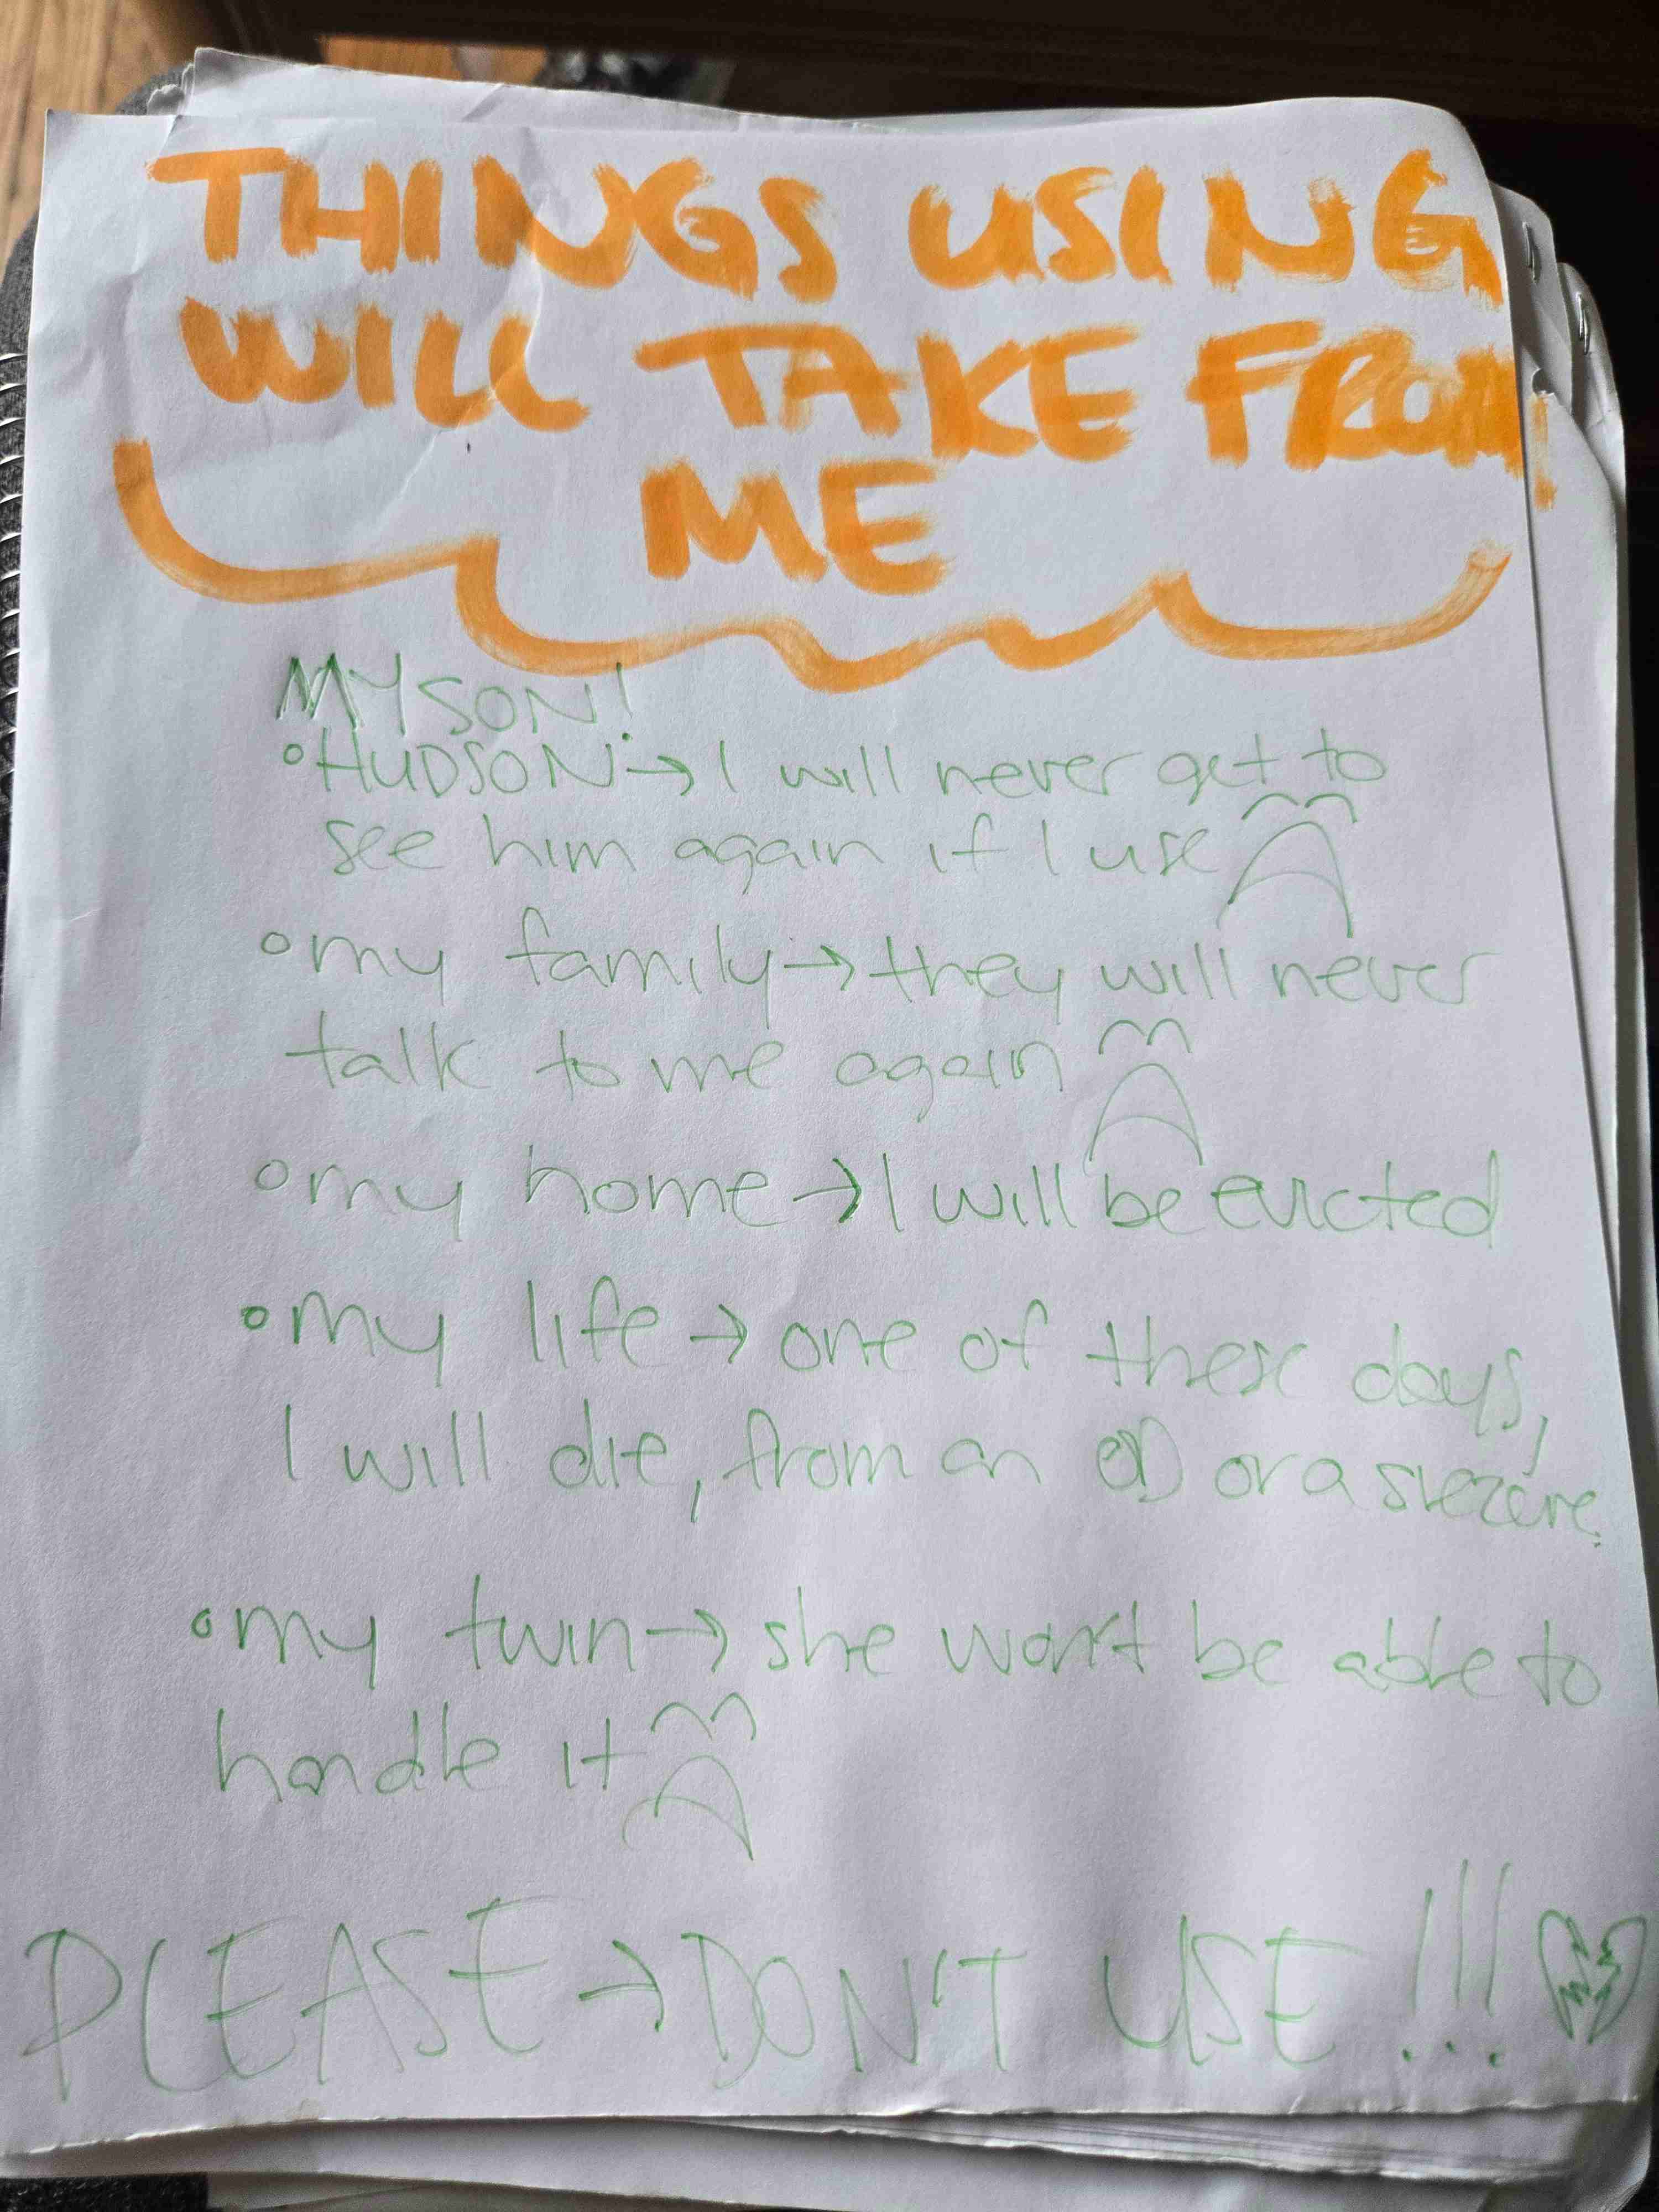 THINGS USING
WILL TAKE FROM
ME
MY SON!
HUDSON → I will never get to
see him again if I use
my family → they will never
talk to me again
my home → I will be evicted
my life → one of these days,
I will die, from an OD or a siezure.
my twin → she won't be able to
handle it
PLEASE → DON'T USE!!!